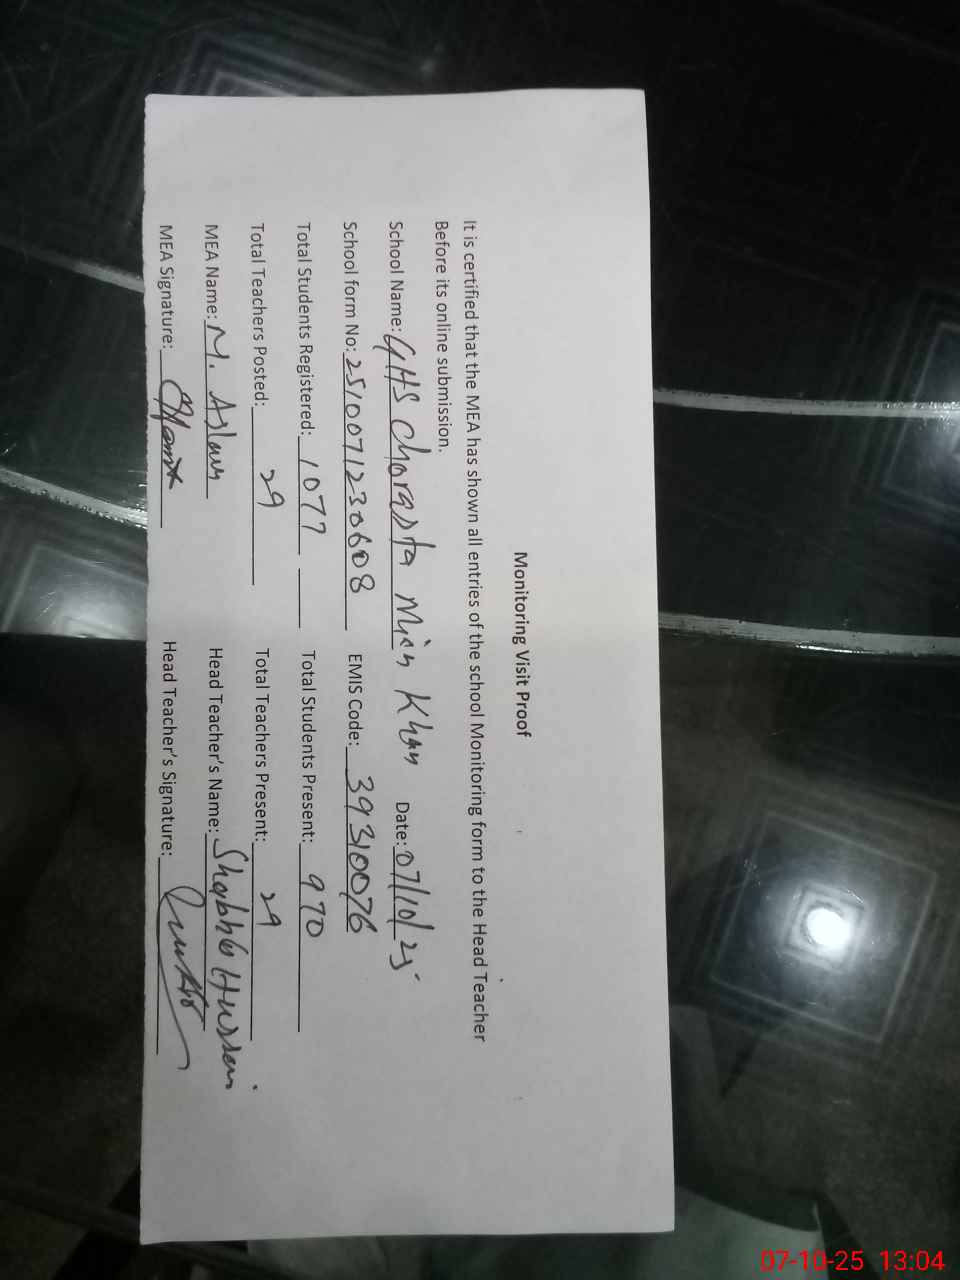 Monitoring Visit Proof
It is certified that the MEA has shown all entries of the school Monitoring form to the Head Teacher
Before its online submission.
School Name: GHS Chorasta Mian Khan Date: 07/10/25
School form No: 2510071230608 EMIS Code: 39310076
Total Students Registered: 1077 Total Students Present: 970
Total Teachers Posted: 29 Total Teachers Present: 29
MEA Name: M. Aslam Head Teacher's Name: Shabbir Hussain
MEA Signature: Head Teacher's Signature:
07-10-25 13:04